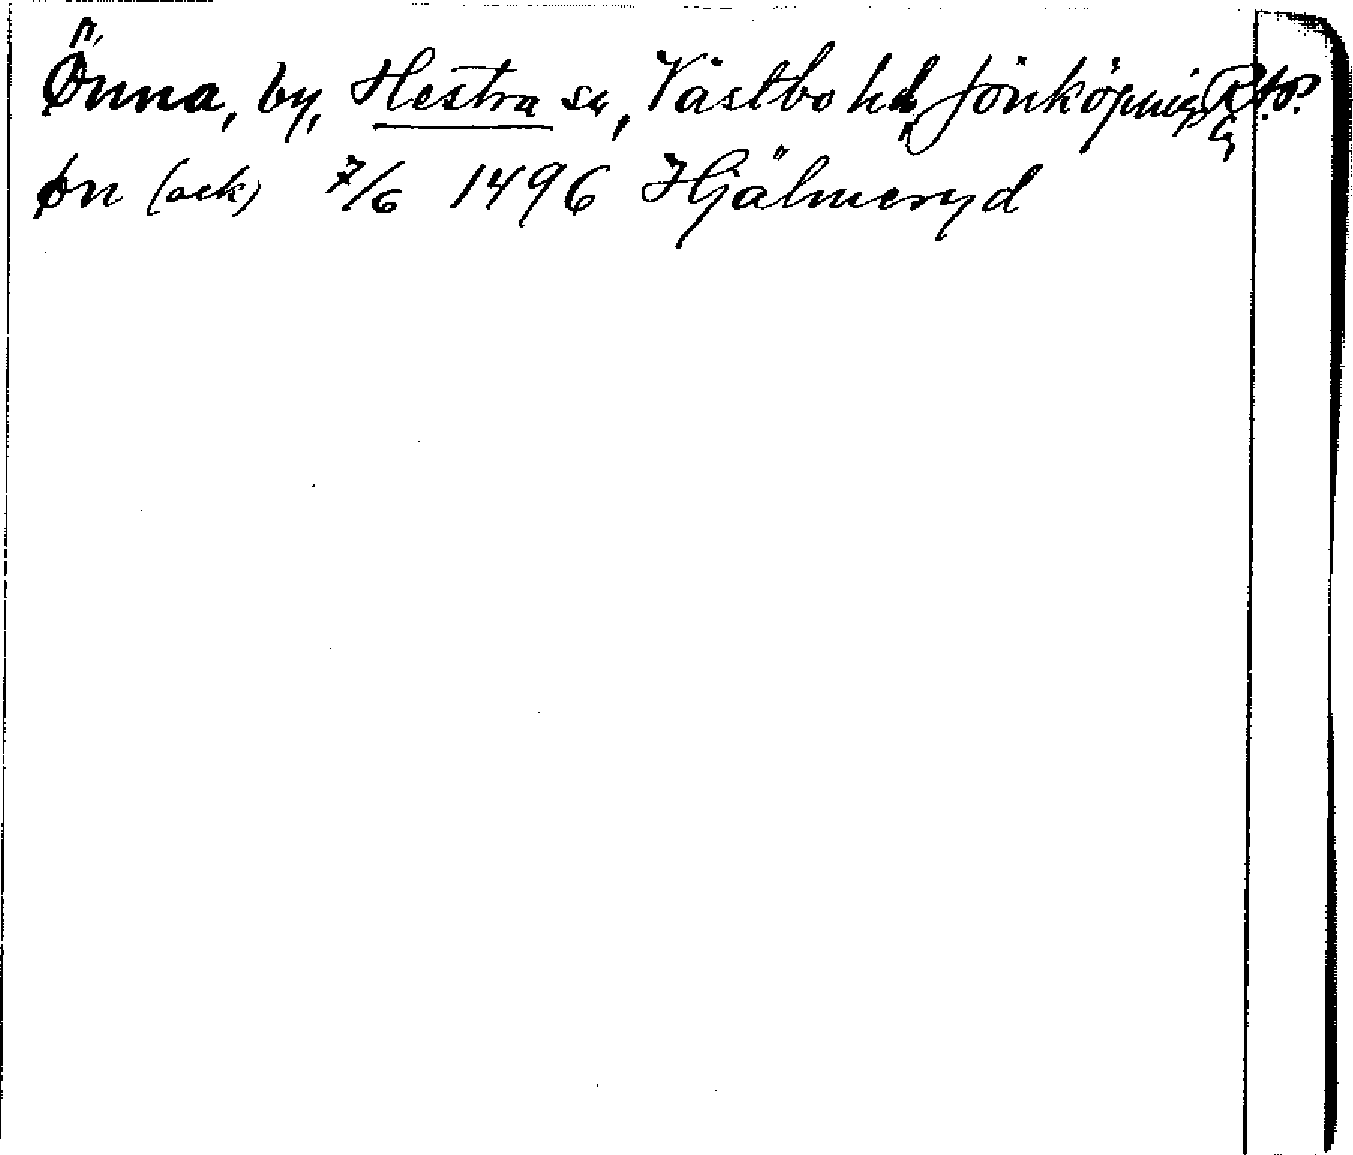 Önna, by, Hestra sn, Västbo hd, Jönköpings
øn (ack) 7/6 1496 Hjälmeryd